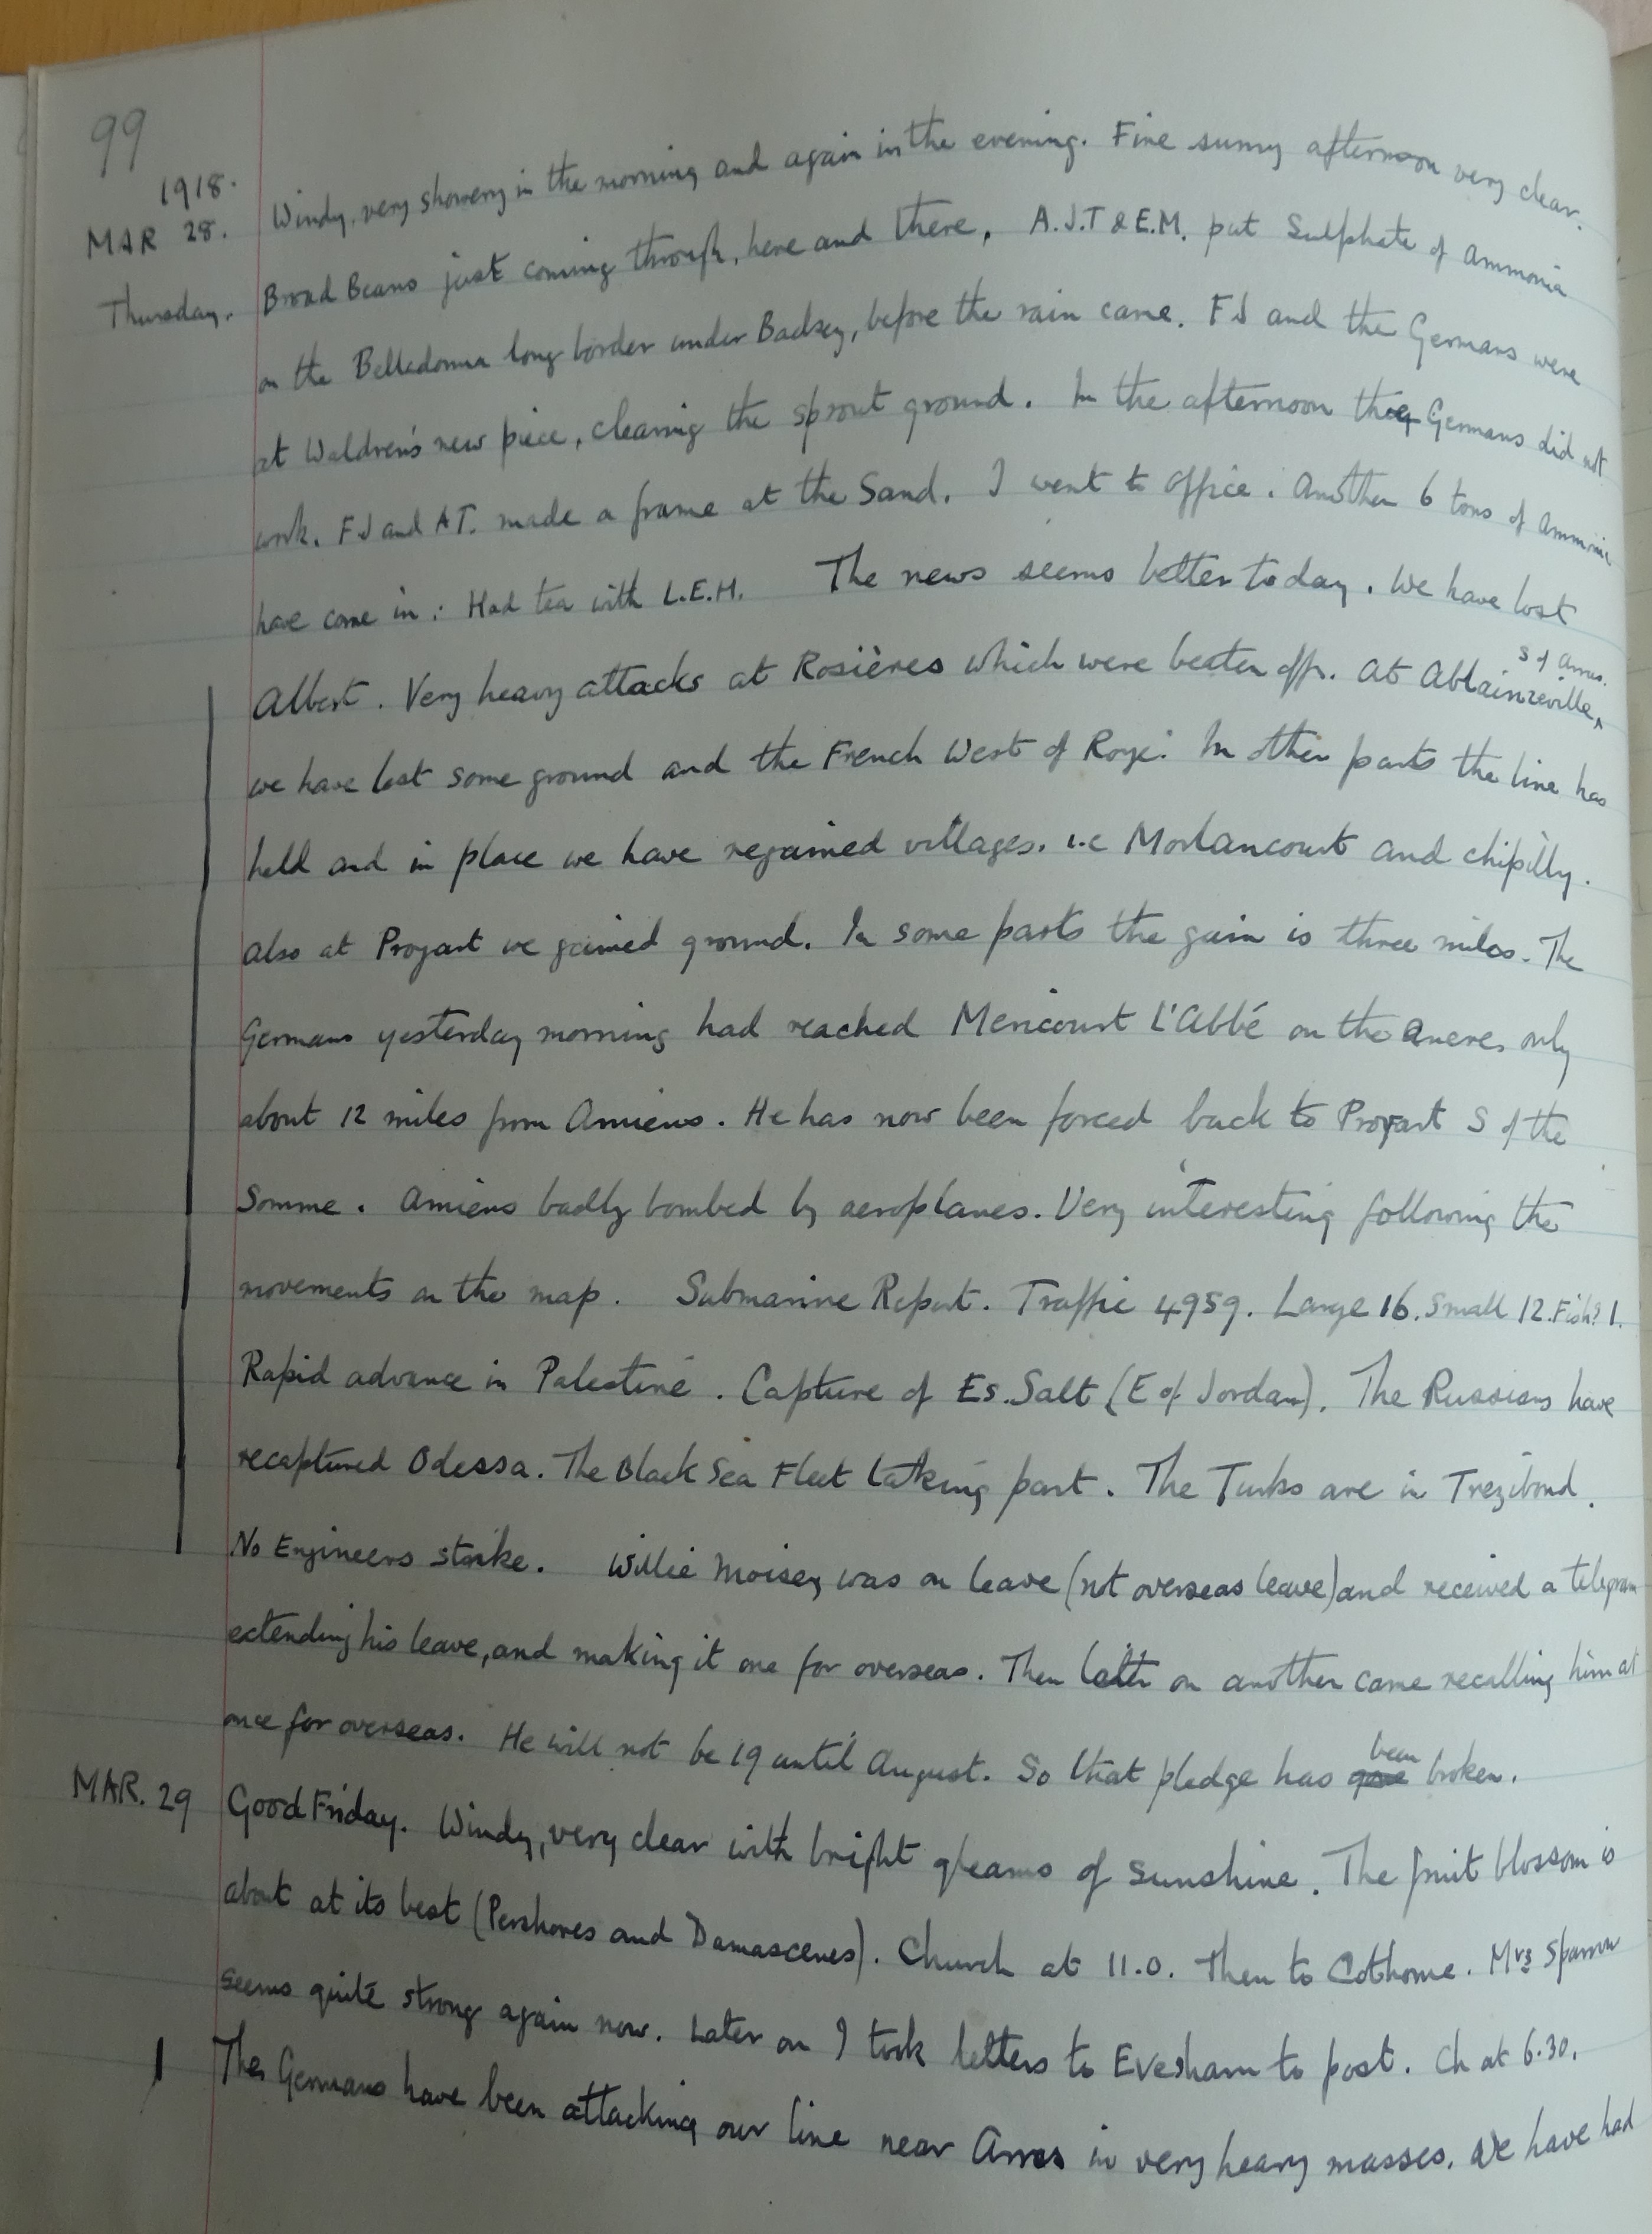 99
1918.
MAR 28. Windy, very showery in the morning and again in the evening. Fine sunny afternoon very clear.
Thursday. Broad Beans just coming through, here and there, A.J.T & E.M. put Sulphate of Ammonia
on the Belladonna long border under Badsey, before the rain came. FJ and the Germans were
at Waldren's new piece, clearing the sprout ground. In the afternoon the Germans did not
work. FJ and AT. made a frame at the Sand. I went to office. Another 6 tons of Ammonia
have come in: Had tea with L.E.H. The news seems better today. We have lost
Albert. Very heavy attacks at Rosières which were beaten off. At Ablainzeville, S of Arras.
we have lost some ground and the French West of Roye. In other parts the line has
held and in place we have regained villages. i.e Morlancourt and chipilly.
also at Proyart we gained ground. In some parts the gain is three miles. The
Germans yesterday morning had reached Mericourt L'Abbé on the Ancre, only
about 12 miles from Amiens. He has now been forced back to Proyart S of the
Somme. Amiens badly bombed by aeroplanes. Very interesting following the
movements on the map. Submarine Report. Traffic 4959. Large 16. Small 12. Fish: 1.
Rapid advance in Palestine. Capture of Es.Salt (E of Jordan). The Russians have
recaptured Odessa. The Black Sea Fleet taking part. The Turks are in Trezibond.
No Engineers strike. Willie Moisey was on leave (not overseas leave) and received a telegram
extending his leave, and making it one for overseas. Then later on another came recalling him at
once for overseas. He will not be 19 until August. So that pledge has been broken.
MAR. 29 Good Friday. Windy, very clear with bright gleams of sunshine. The fruit blossom is
about at its best (Pershores and Damascenes). Church at 11.0. Then to Cothome. Mrs Sparrow
seems quite strong again now. Later on I took letters to Evesham to post. Ch at 6.30.
The Germans have been attacking our line near Arras in very heavy masses. We have had